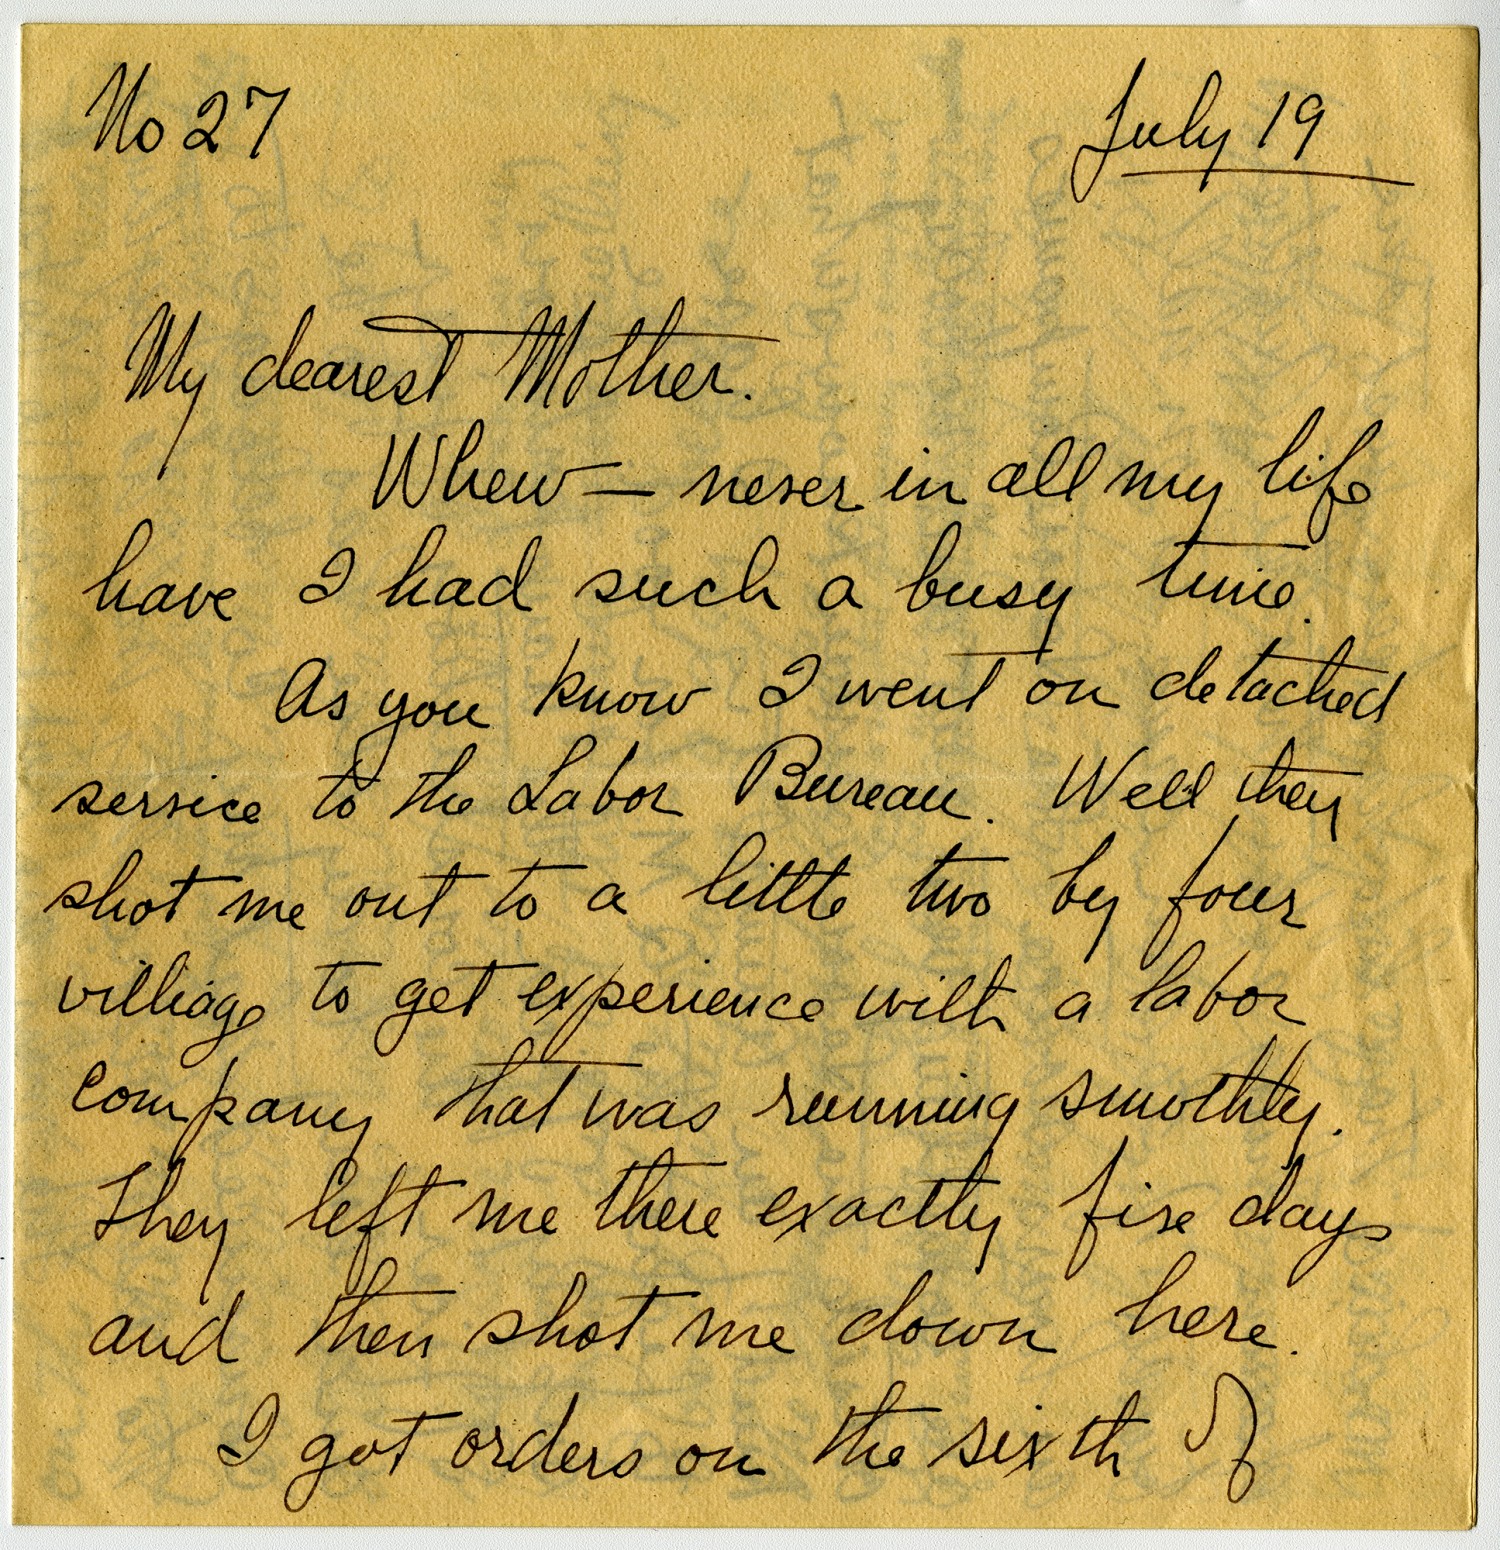 No 27
July 19
My dearest Mother.
Whew — never in all my life
have I had such a busy time.
As you know I went on detached
service to the Labor Bureau. Well they
shot me out to a little two by four
village to get experience with a labor
company that was running smothly.
They left me there exactly five days
and then shot me down here.
I got orders on the sixth of